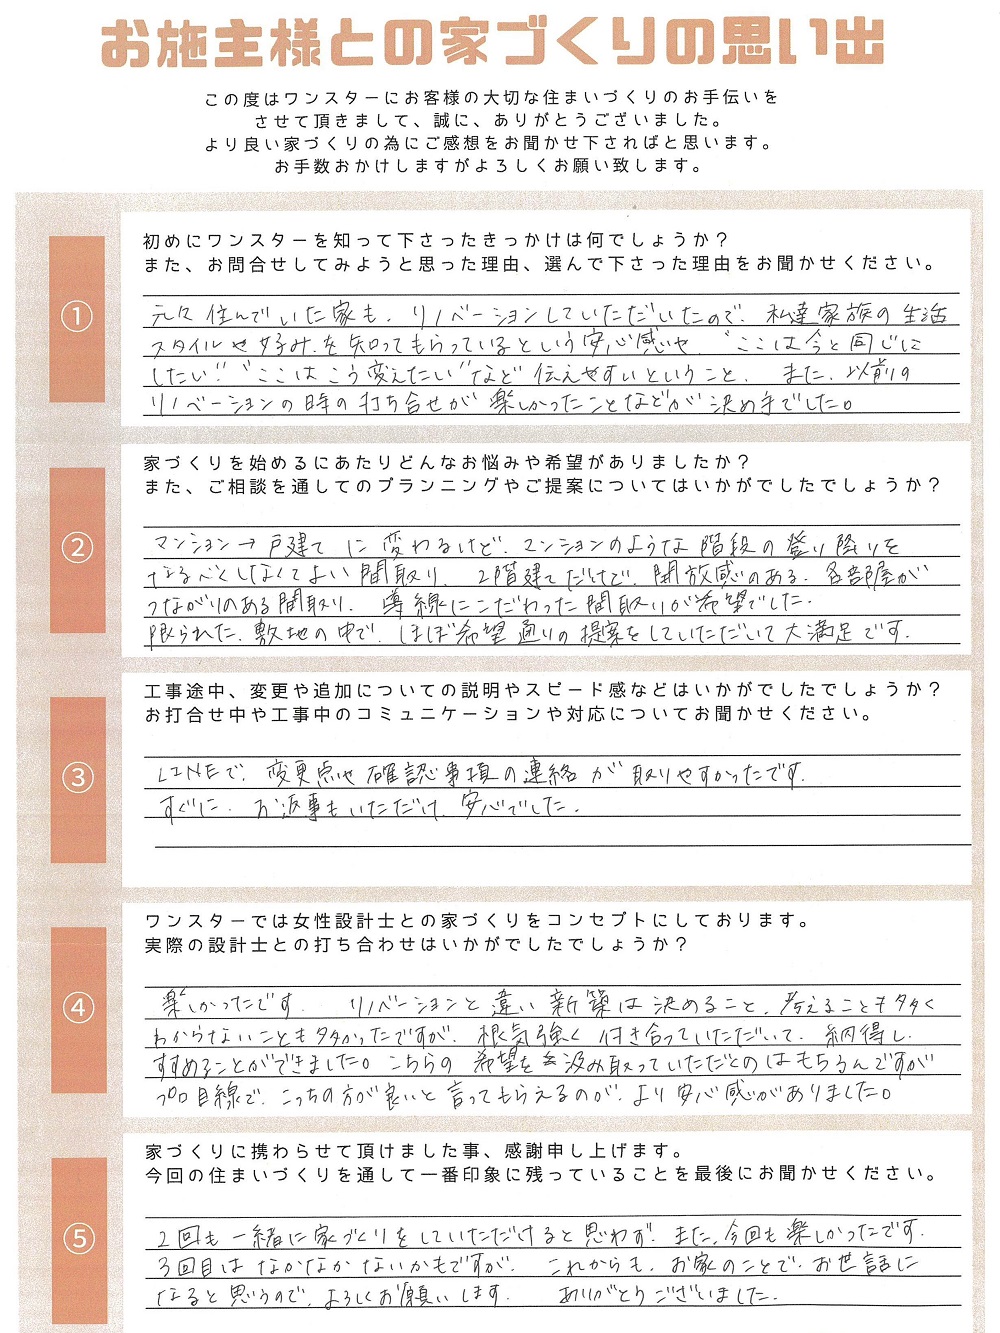 お施主様との家づくりの思い出
この度はワンスターにお客様の大切な住まいづくりのお手伝いを
させて頂きまして、誠に、ありがとうございました。
より良い家づくりの為にご感想をお聞かせ下さればと思います。
お手数おかけしますがよろしくお願い致します。
①
初めにワンスターを知って下さったきっかけは何でしょうか？
また、お問合せしてみようと思った理由、選んで下さった理由をお聞かせください。
元々住んでいた家も、リノベーションしていただいたので、私達家族の生活
スタイルや好みを知ってもらっているという安心感や、"ここは今と同じに
したい""ここはこう変えたい"など伝えやすいということ、また、以前の
リノベーションの時の打ち合せが楽しかったことなどが決め手でした。
②
家づくりを始めるにあたりどんなお悩みや希望がありましたか？
また、ご相談を通してのプランニングやご提案についてはいかがでしたでしょうか？
マンション→戸建てに変わるけど、マンションのような階段の登り降りを
なるべくしなくてよい間取り、2階建てだけど、開放感のある、各部屋が
つながりのある間取り、導線にこだわった間取りが希望でした。
限られた敷地の中で、ほぼ希望通りの提案をしていただいて大満足です。
③
工事途中、変更や追加についての説明やスピード感などはいかがでしたでしょうか？
お打合せ中や工事中のコミュニケーションや対応についてお聞かせください。
LINEで、変更点や確認事項の連絡が取りやすかったです。
すぐに、お返事もいただけ、安心でした。
④
ワンスターでは女性設計士との家づくりをコンセプトにしております。
実際の設計士との打ち合わせはいかがでしたでしょうか？
楽しかったです。リノベーションと違い新築は決めること、考えることも多く
わからないことも多かったですが、根気強く付き合っていただいて、納得し
すすめることができました。こちらの希望を汲み取っていただくのはもちろんですが
プロ目線で、こっちの方が良いと言ってもらえるのが、より安心感がありました。
⑤
家づくりに携わらせて頂けました事、感謝申し上げます。
今回の住まいづくりを通して一番印象に残っていることを最後にお聞かせください。
2回も一緒に家づくりをしていただけると思わず、また、今回も楽しかったです。
3回目はなかなかないかもですが、これからも、お家のことで、お世話に
なると思うので、よろしくお願いします。ありがとうございました。